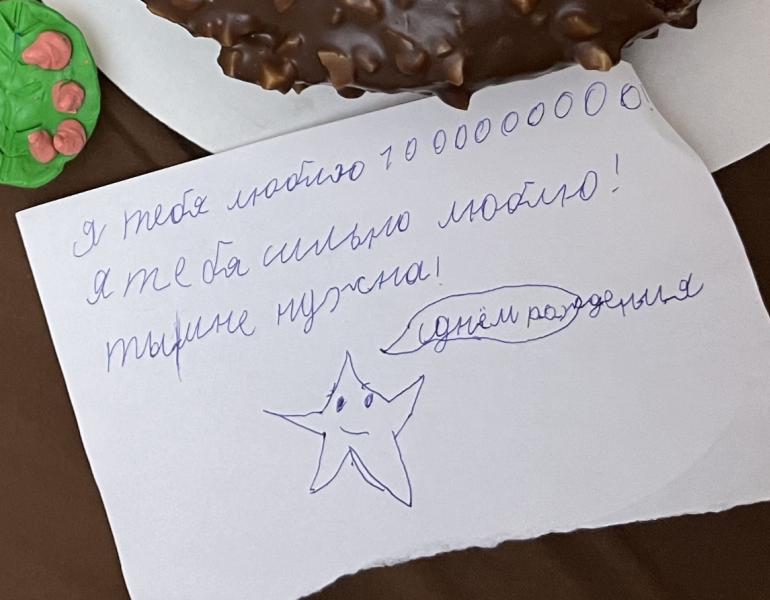 я тебя люблю 10000000000!
я тебя сильно люблю!
ты мне нужна!
с днём рождения